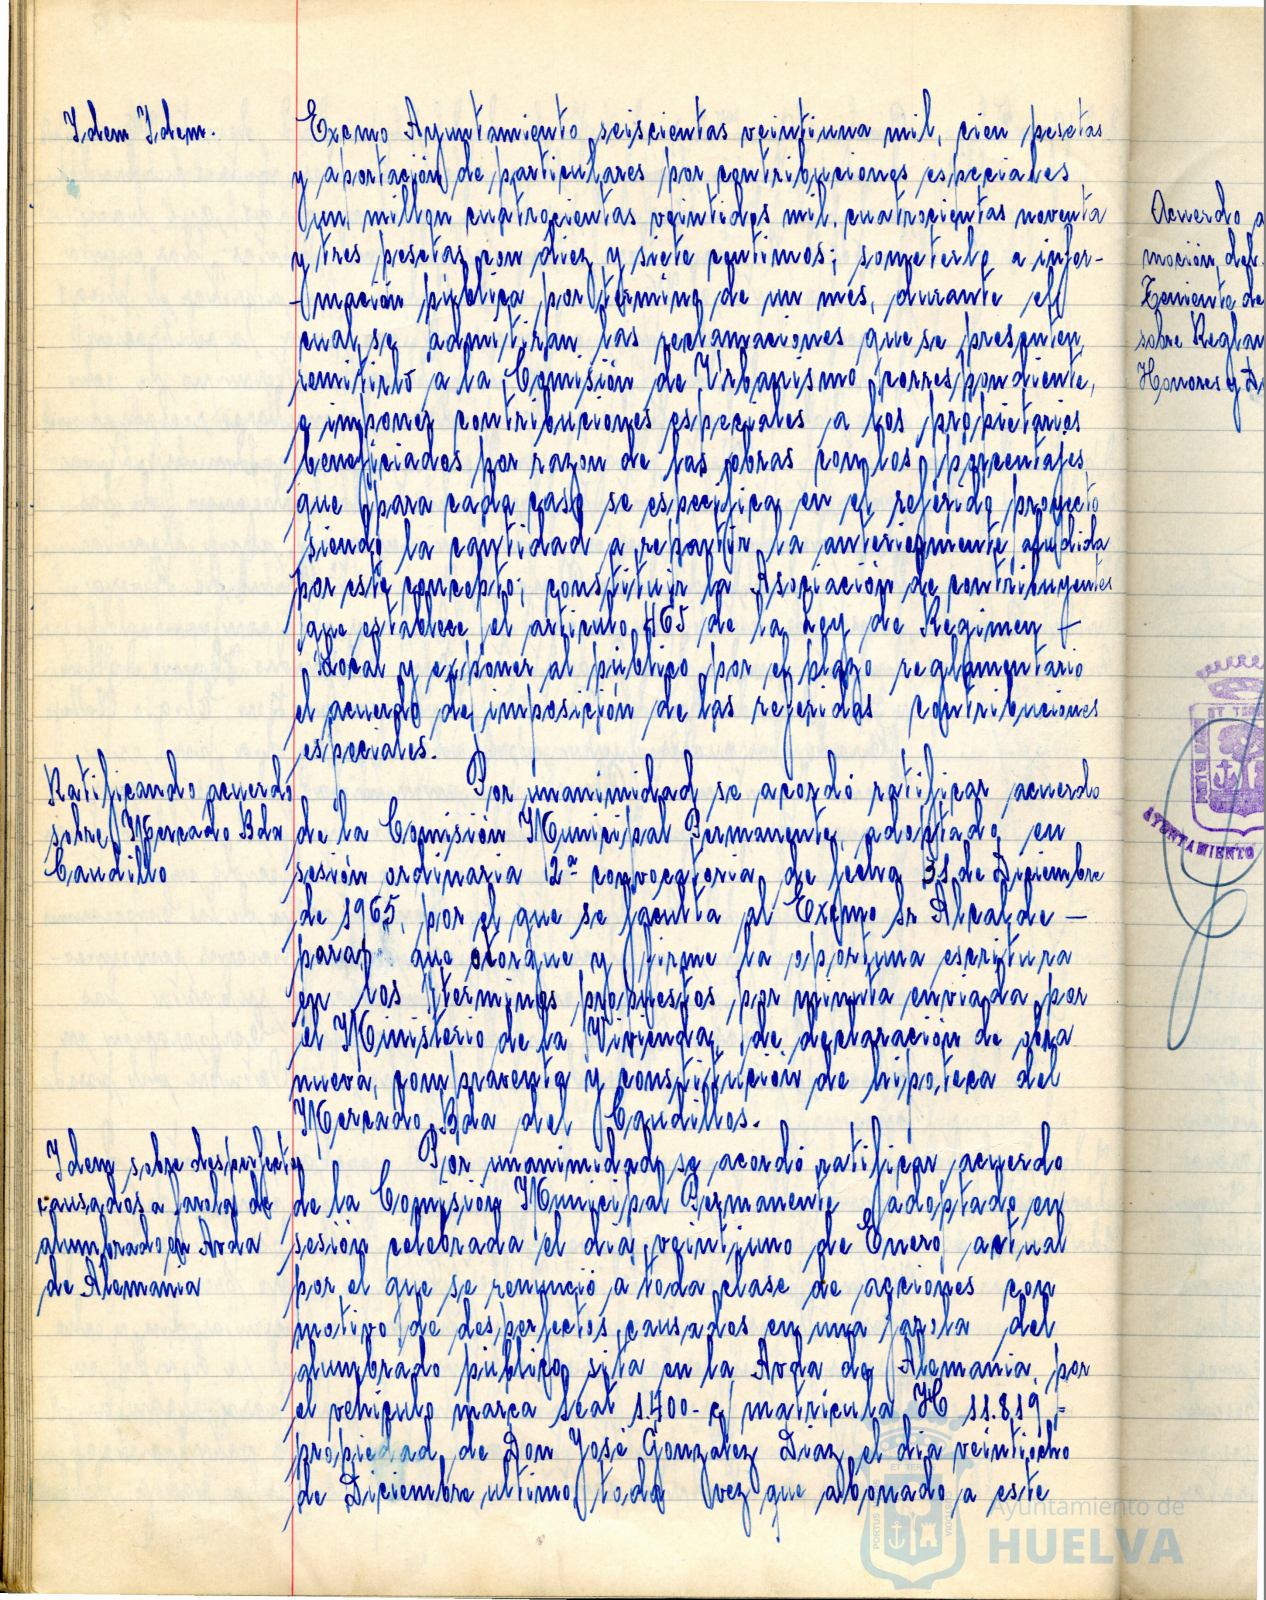 Idem Idem.
Excmo Ayuntamiento, seiscientas veintiuna mil, cien pesetas
y aportación de particulares por contribuciones especiales
un millon cuatrocientas veintidos mil, cuatrocientas noventa
y tres pesetas con diez y siete centimos; someterlo a infor-
-mación pública por termino de un mes, durante el
cual se admitiran las reclamaciones que se presenten,
remitirlo a la Comisión de Urbanismo correspondiente,
e imponer contribuciones especiales a los propietarios
beneficiados por razon de las obras con los porcentajes
que para cada caso se especifica en el referido proyecto
siendo la cantidad a repartir la anteriormente aludida
por este concepto; constituir la Asociación de contribuyentes
que establece el articulo 465 de la Ley de Regimen -
Local y exponer al público por el plazo reglamentario
el acuerdo de imposición de las referidas contribuciones
especiales.
Ratificando acuerdo
sobre Mercado Bda
Caudillo
Por unanimidad se acordó ratificar acuerdo
de la Comisión Municipal Permanente, adoptado en
sesión ordinaria 2ª convocatoria de fecha 31 de Diciembre
de 1965, por el que se faculta al Excmo Sr Alcalde -
para que otorgue y firme la oportuna escritura
en los terminos propuestos por minuta enviada por
el Ministerio de la Vivienda, de declaración de obra
nueva, compraventa y constitución de hipoteca del
Mercado Bda del Caudillos.
Idem sobre desperfectos
causados a farola de
alumbrado en Avda
de Alemania
Por unanimidad se acordó ratificar acuerdo
de la Comisión Municipal Permanente adoptado en
sesión celebrada el dia veintiuno de Enero actual
por el que se renunció a toda clase de acciones con
motivo de desperfectos causados en una farola del
alumbrado público sita en la Avda de Alemania, por
el vehiculo marca Seat 1.400-c, matrícula H 11.819,-
propiedad de Don José Gonzalez Diaz el dia veintiocho
de Diciembre ultimo, toda vez que abonado a este
Acuerdo a
moción del
Teniente de
sobre Reglam
Honores y D
AYUNTAMIENTO
Ayuntamiento de
HUELVA